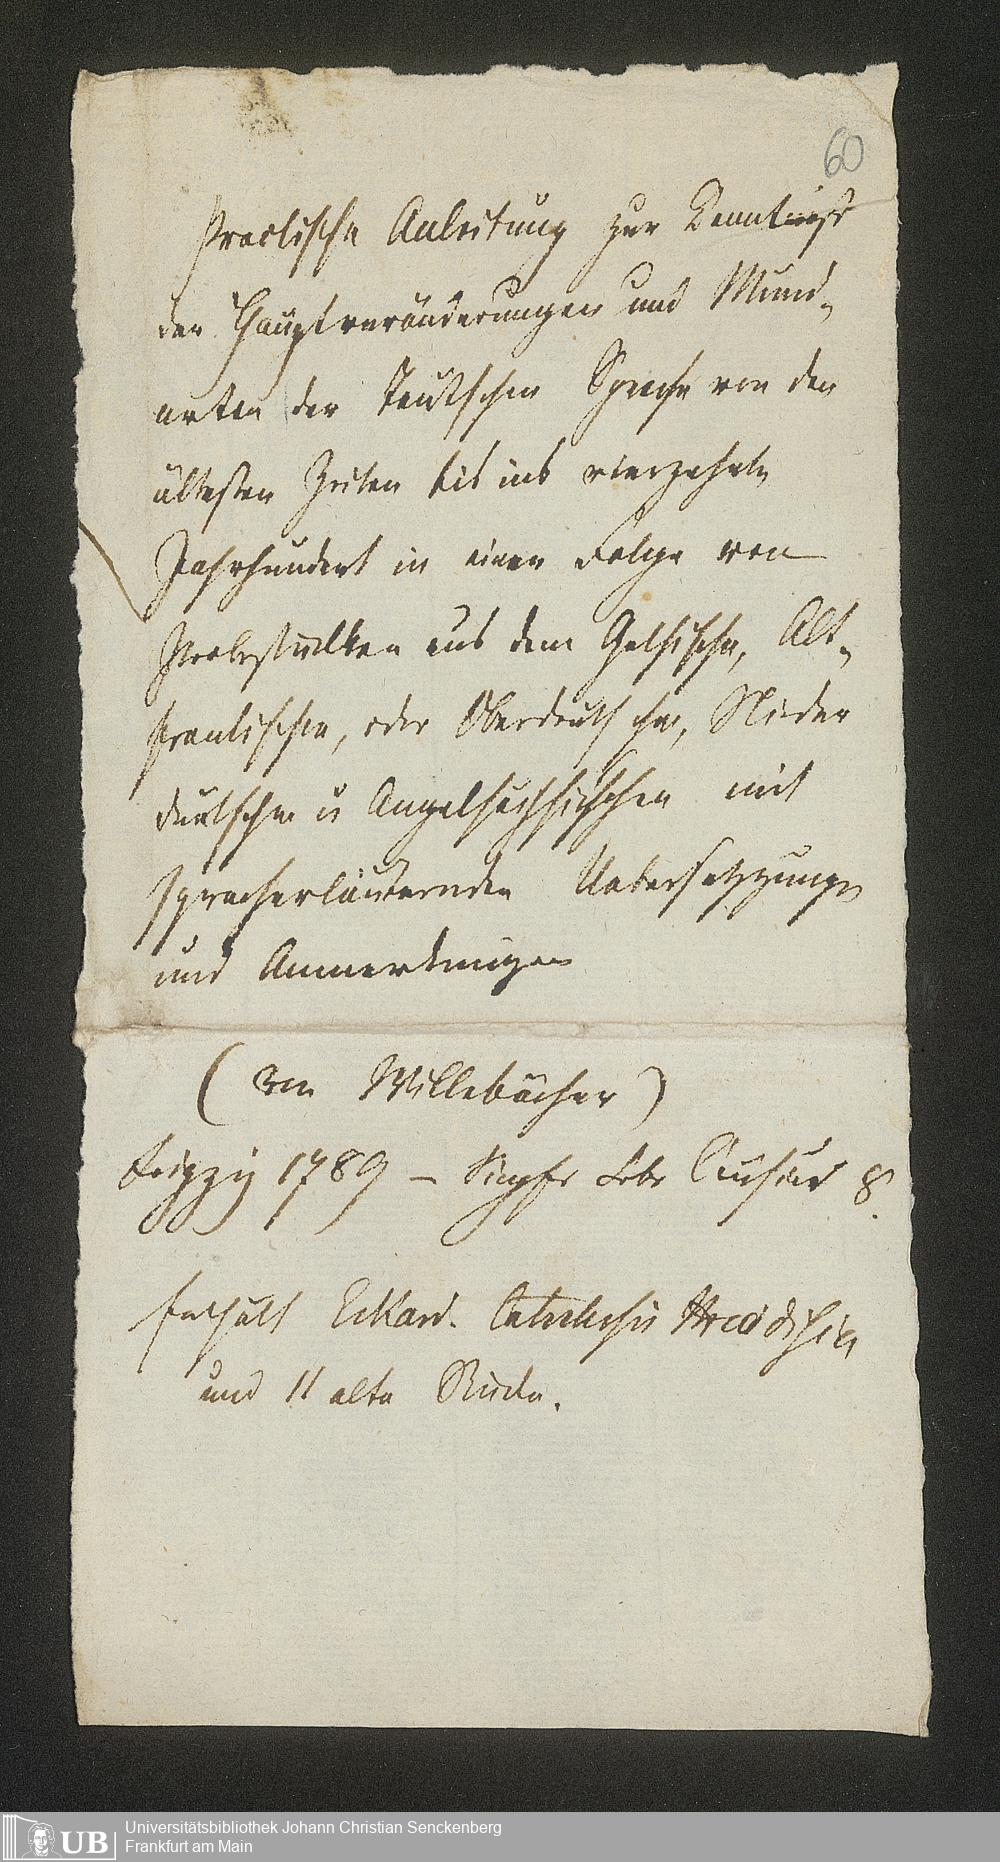 60
Practische Anleitung zur Kenntniß
der Hauptveränderungen und Mund-
arten der Teutschen Sprache von den
ältesten Zeiten bis ins vierzehnte
Jahrhundert in einer Folge von
Probestücken aus dem Gothischen, Alt-
fränkischen, oder Oberdeutschen, Nieder
deutschen u Angelsächsischen mit
spracherläuternden Uebersetzungen
und Anmerkungen
(von Willebücher)
Leipzig 1789 – Siegfr Lebr Crusius 8.
Enthält Eckard.
und 11 alte
Universitätsbibliothek Johann Christian Senckenberg
Frankfurt am Main
UB